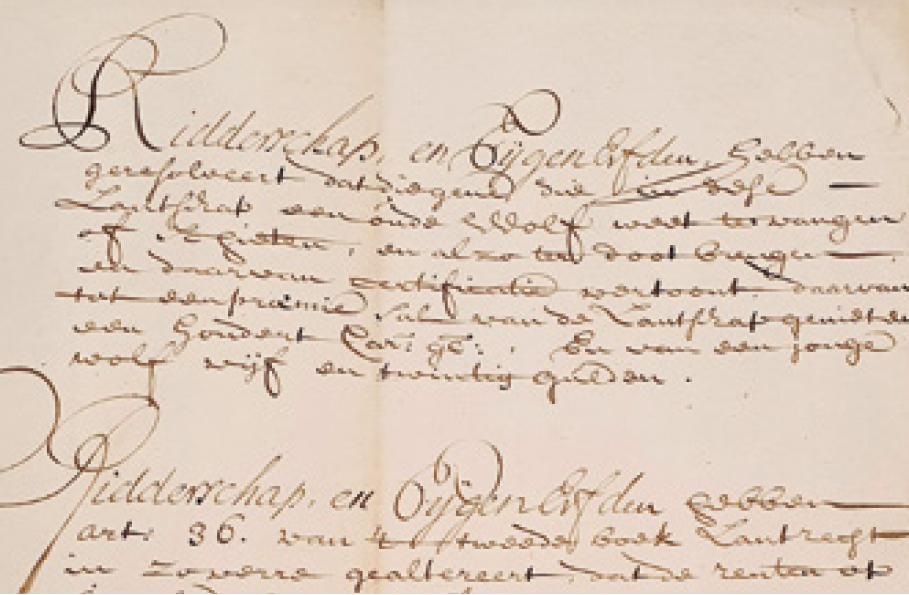 Ridderschap, en Eijgen Erfden, hebben
geresolveert dat diegene, die in dese
Lantschap een oude Wolf weet te vangen
of te schieten, en alzo ter doot brenge
en daarvan certificatie vertoont, daarvan
tot een præmie sal van de Lantschap genieten
een hondert Car: gl: . En van een jonge
wolf vijf en twintig gulden.
Ridderschap, en Eijgen Erfden hebben
art: 36. van 't tweede boek Lantrecht
in zo verre gealtereert, dat de renten op